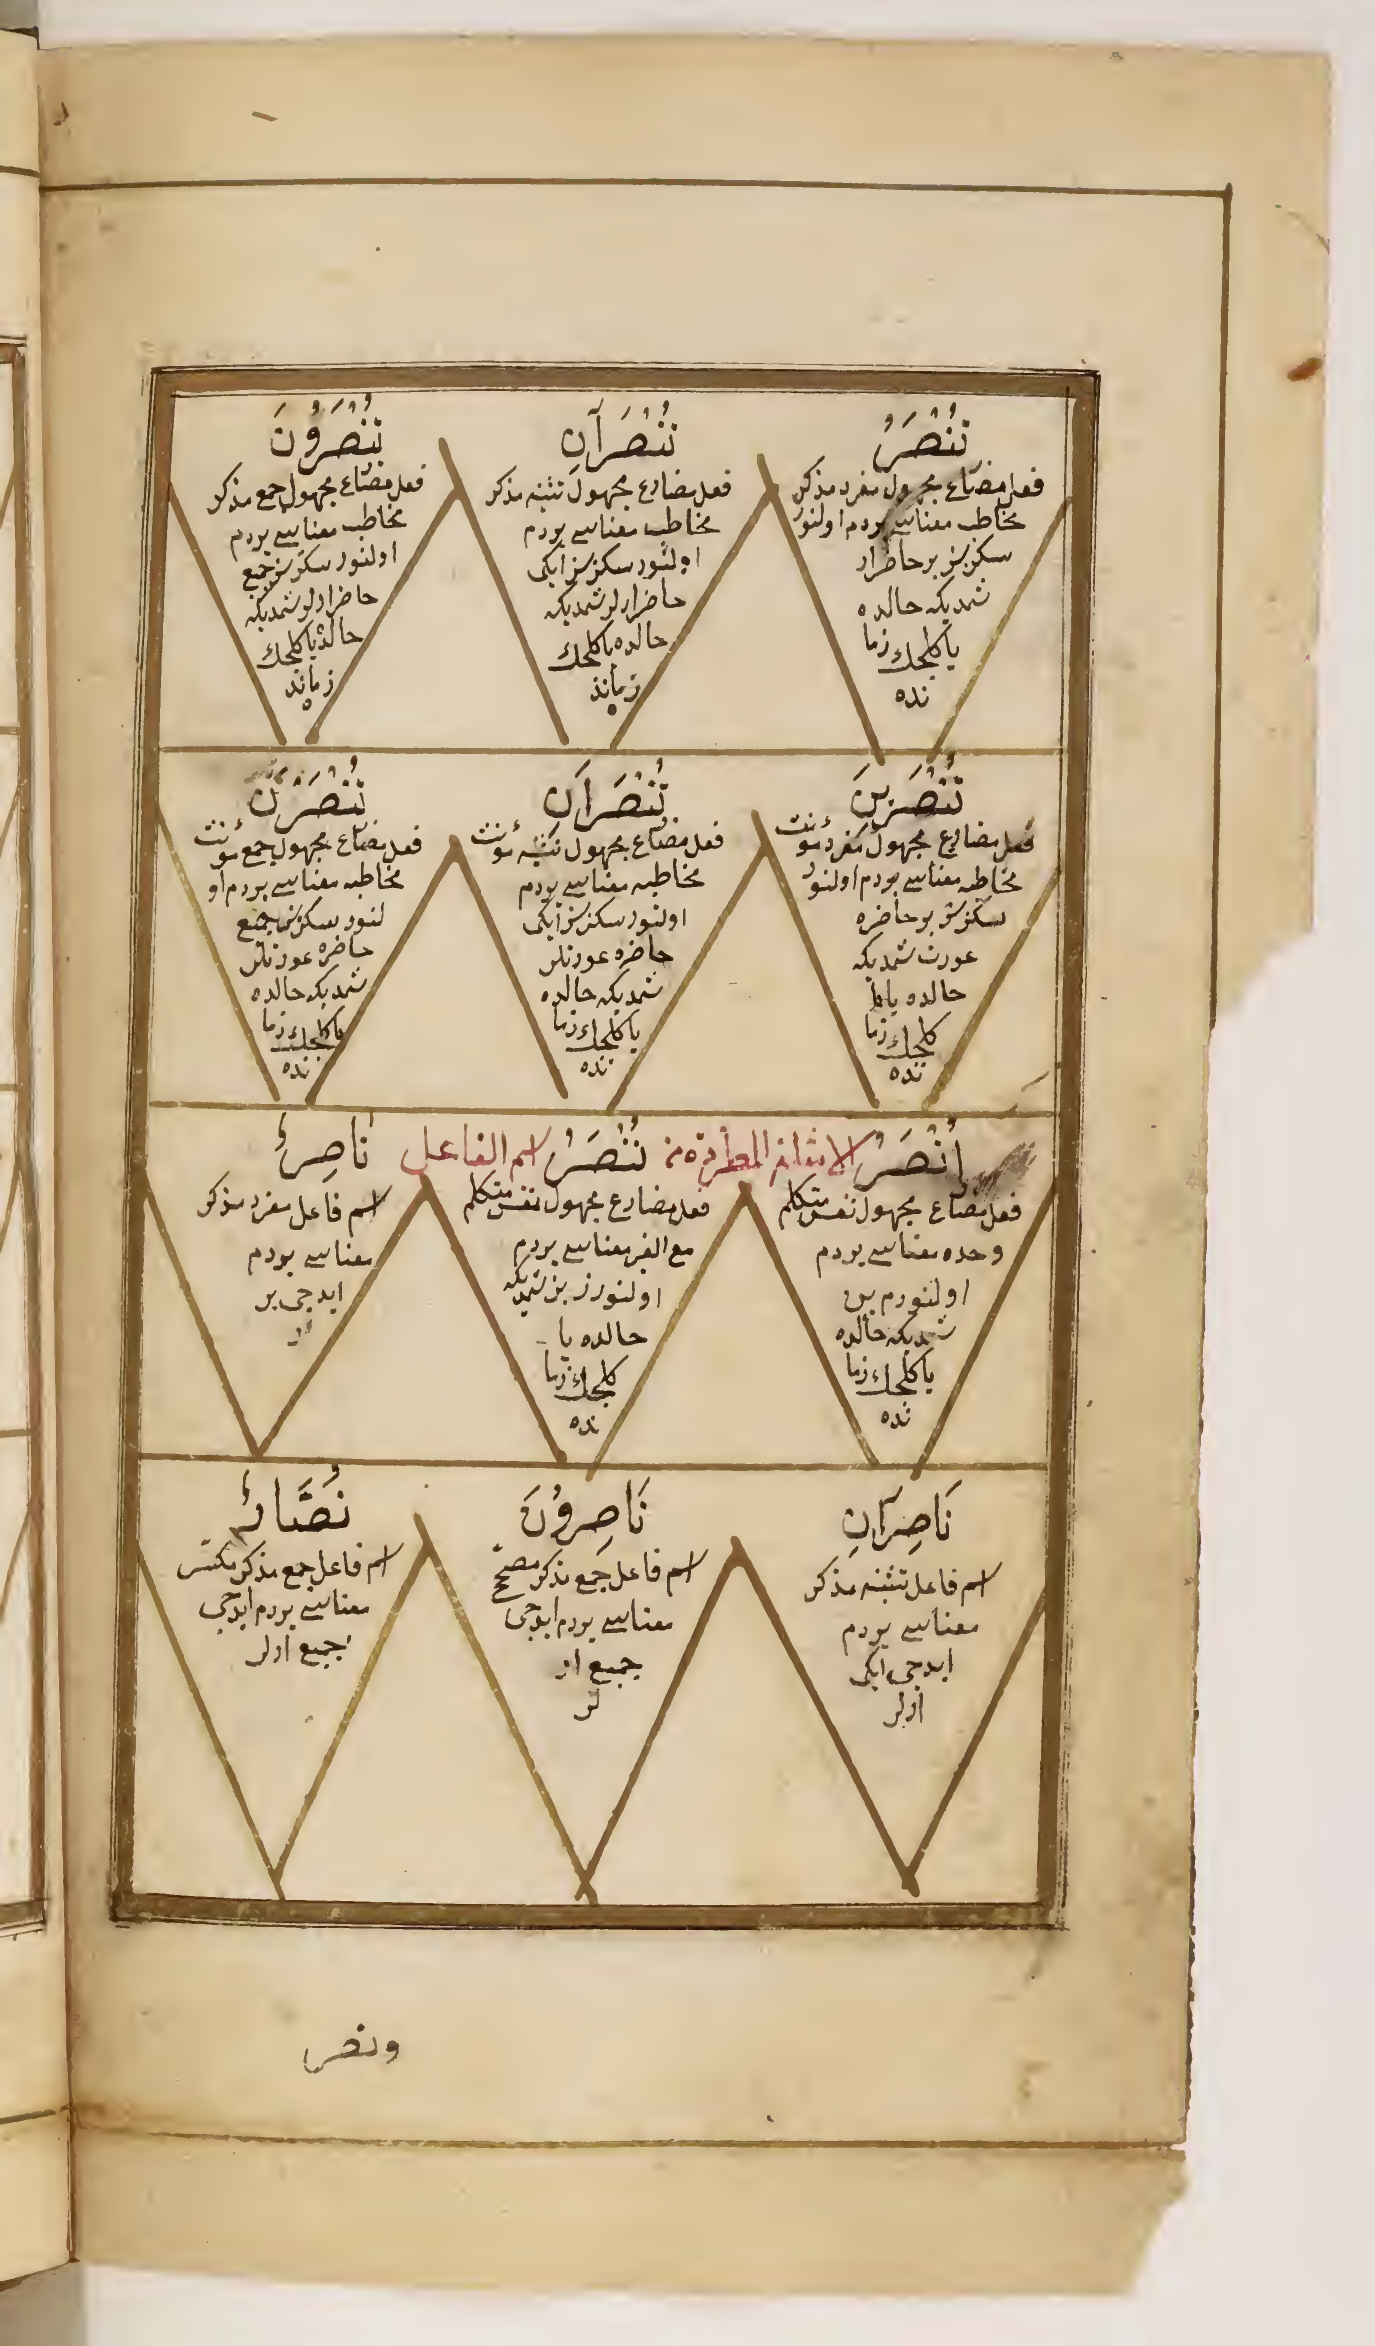 تُنْصَرُ
فعل مضارع مجهول مفرد مذكر
مخاطب معناسى يردم اولنور
سكز سن بر حاضر ار
شمديكه حالده
يا كله جك زما
نده
تُنْصَرَانِ
فعل مضارع مجهول تثنيه مذكر
مخاطب معناسى يردم
اولنور سكز سز ايكى
حاضر ارلر شمديكه
حالده يا كله جك
زمانده
تُنْصَرُونَ
فعل مضارع مجهول جمع مذكر
مخاطب معناسى يردم
اولنور سكز سز جمع
حاضر ارلر شمديكه
حالده يا كله جك
زمانده
تُنْصَرِينَ
فعل مضارع مجهول مفرد مؤنث
مخاطبه معناسى يردم اولنور
سكز سن بر حاضره
عورت شمديكه
حالده يا
كله جك زما
نده
تُنْصَرَانِ
فعل مضارع مجهول تثنيه مؤنث
مخاطبه معناسى يردم
اولنور سكز سز ايكى
حاضره عورتلر
شمديكه حالده
يا كله جك زما
نده
تُنْصَرْنَ
فعل مضارع مجهول جمع مؤنث
مخاطبه معناسى يردم او
لنور سكز سز جمع
حاضره عورتلر
شمديكه حالده
يا كله جك زما
نده
اُنْصَرُ
فعل مضارع مجهول نفس متكلم
وحده معناسى يردم
اولنورم بن
شمديكه حالده
يا كله جك زما
نده
الامثلة المطردة من
نُنْصَرُ
فعل مضارع مجهول نفس متكلم
مع الغير معناسى يردم
اولنورز بز شمديكه
حالده يا
كله جك زما
نده
اسم الفاعل
نَاصِرٌ
اسم فاعل مفرد مذكر
معناسى يردم
ايدجى بر
ار
نَاصِرَانِ
اسم فاعل تثنيه مذكر
معناسى يردم
ايدجى ايكى
ارلر
نَاصِرُونَ
اسم فاعل جمع مذكر مصحح
معناسى يردم ايدجى
جميع ار
لر
نُصَّارٌ
اسم فاعل جمع مذكر مكسر
معناسى يردم ايدجى
جميع ارلر
ونصر